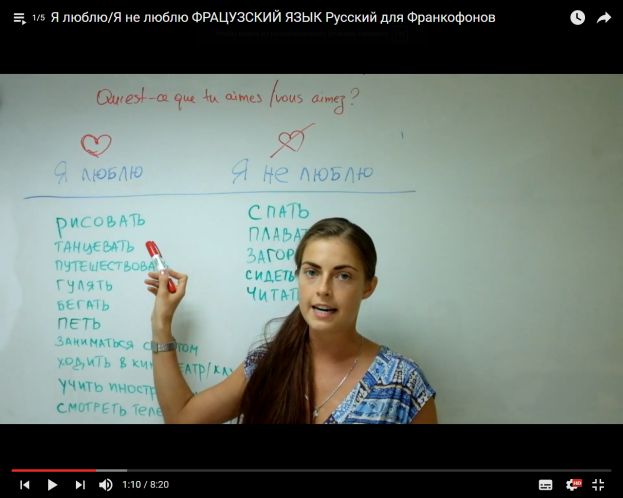 1/5 Я люблю/Я не люблю ФРАЦУЗСКИЙ ЯЗЫК Русский для Франкофонов
Qu'est-ce que tu aimes /vous aimez?
Я ЛЮБЛЮ
Я НЕ ЛЮБЛЮ
РИСОВАТЬ
ТАНЦЕВАТЬ
ПУТЕШЕСТВОВА
ГУЛЯТЬ
БЕГАТЬ
ПЕТЬ
ЗАНИМАТЬСЯ
ХОДИТЬ В
УЧИТЬ ИНОСТР
СМОТРЕТЬ ТЕЛЕ
СПАТЬ
ПЛАВА
ЗАГОР
СИДЕТЬ
ЧИТАТ
1:10 / 8:20
HD